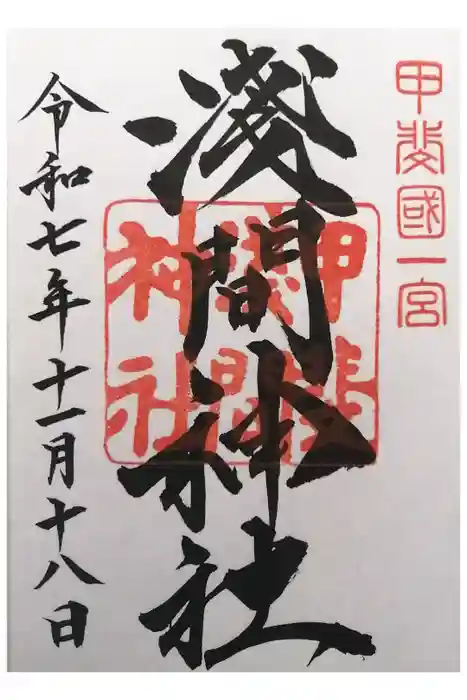 甲斐國一宮
淺間神社
甲斐淺間神社
令和七年十一月十八日